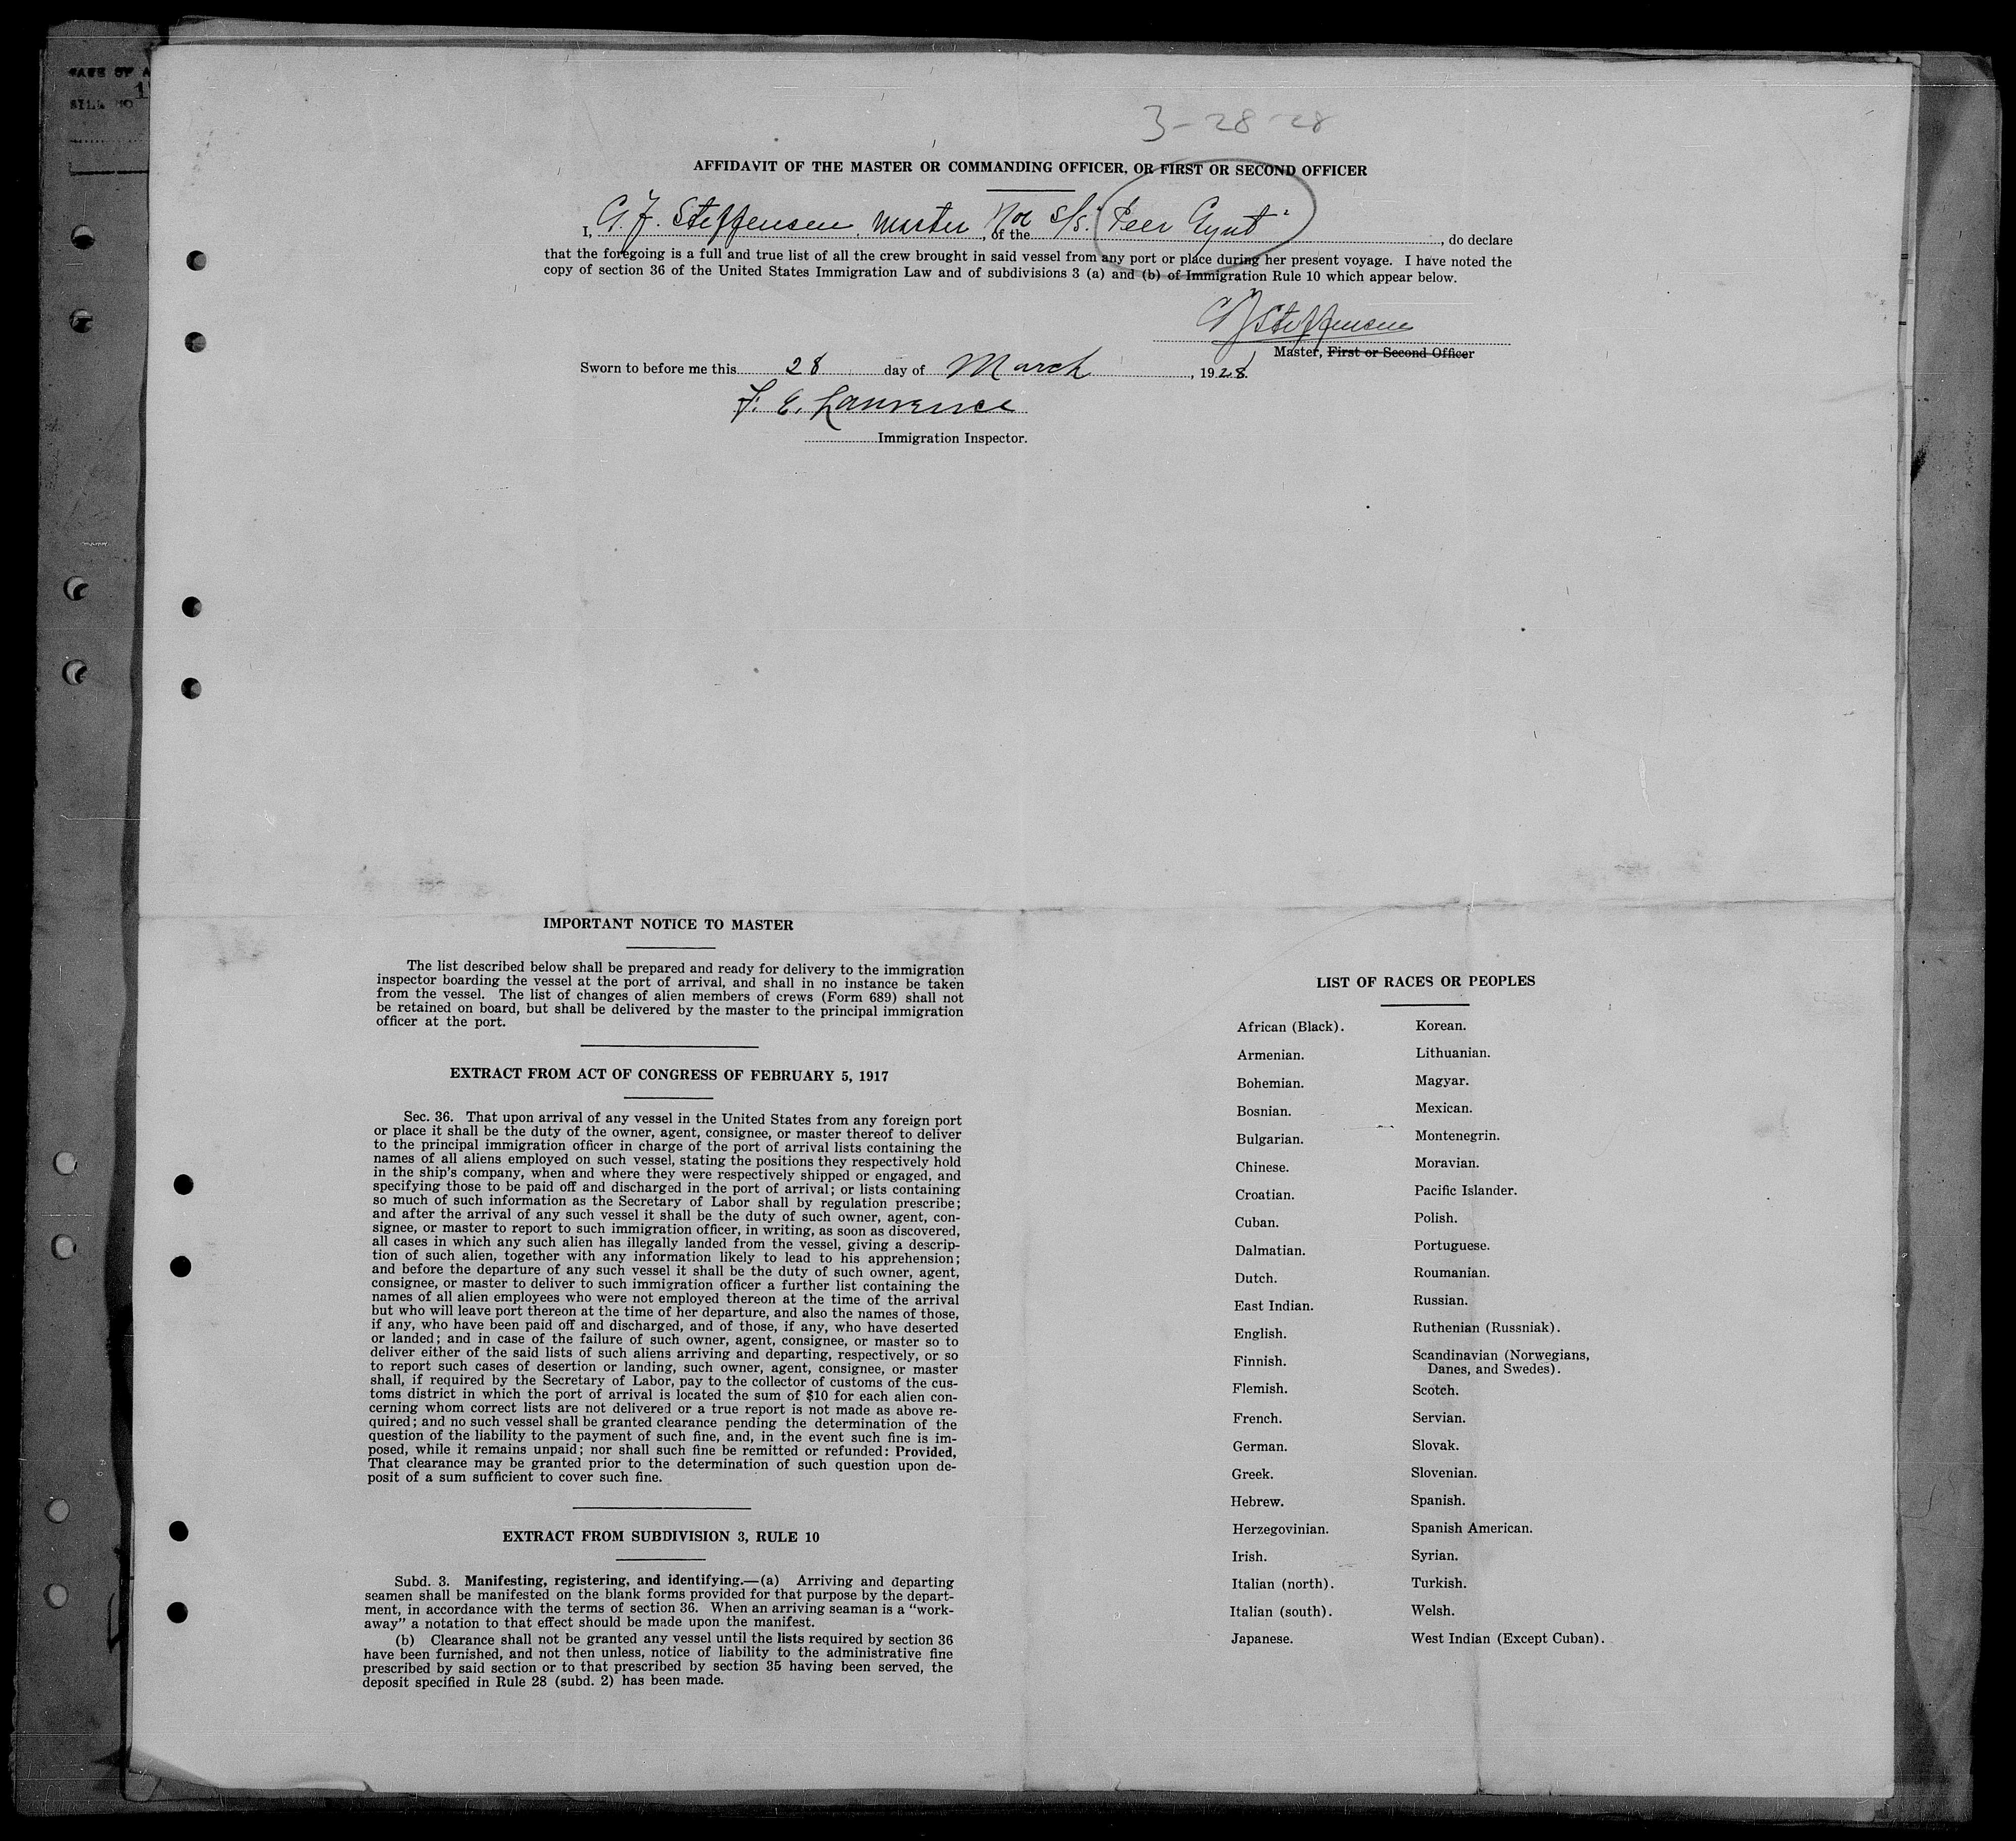 3-28-28
AFFIDAVIT OF THE MASTER OR COMMANDING OFFICER, OR FIRST OR SECOND OFFICER
I, G. F. Steffensen, Master, of the Nor s/s. "Peer Gynt", do declare
that the foregoing is a full and true list of all the crew brought in said vessel from any port or place during her present voyage. I have noted the
copy of section 36 of the United States Immigration Law and of subdivisions 3 (a) and (b) of Immigration Rule 10 which appear below.
Steffensen
Master, First or Second Officer
Sworn to before me this 28 day of March, 1928.
F. E. Lawrence
Immigration Inspector.
IMPORTANT NOTICE TO MASTER
The list described below shall be prepared and ready for delivery to the immigration
inspector boarding the vessel at the port of arrival, and shall in no instance be taken
from the vessel. The list of changes of alien members of crews (Form 689) shall not
be retained on board, but shall be delivered by the master to the principal immigration
officer at the port.
EXTRACT FROM ACT OF CONGRESS OF FEBRUARY 5, 1917
Sec. 36. That upon arrival of any vessel in the United States from any foreign port
or place it shall be the duty of the owner, agent, consignee, or master thereof to deliver
to the principal immigration officer in charge of the port of arrival lists containing the
names of all aliens employed on such vessel, stating the positions they respectively hold
in the ship's company, when and where they were respectively shipped or engaged, and
specifying those to be paid off and discharged in the port of arrival; or lists containing
so much of such information as the Secretary of Labor shall by regulation prescribe;
and after the arrival of any such vessel it shall be the duty of such owner, agent, con-
signee, or master to report to such immigration officer, in writing, as soon as discovered,
all cases in which any such alien has illegally landed from the vessel, giving a descrip-
tion of such alien, together with any information likely to lead to his apprehension;
and before the departure of any such vessel it shall be the duty of such owner, agent,
consignee, or master to deliver to such immigration officer a further list containing the
names of all alien employees who were not employed thereon at the time of the arrival
but who will leave port thereon at the time of her departure, and also the names of those,
if any, who have been paid off and discharged, and of those, if any, who have deserted
or landed; and in case of the failure of such owner, agent, consignee, or master so to
deliver either of the said lists of such aliens arriving and departing, respectively, or so
to report such cases of desertion or landing, such owner, agent, consignee, or master
shall, if required by the Secretary of Labor, pay to the collector of customs of the cus-
toms district in which the port of arrival is located the sum of $10 for each alien con-
cerning whom correct lists are not delivered or a true report is not made as above re-
quired; and no such vessel shall be granted clearance pending the determination of the
question of the liability to the payment of such fine, and, in the event such fine is im-
posed, while it remains unpaid; nor shall such fine be remitted or refunded: Provided,
That clearance may be granted prior to the determination of such question upon de-
posit of a sum sufficient to cover such fine.
EXTRACT FROM SUBDIVISION 3, RULE 10
Subd. 3. Manifesting, registering, and identifying.—(a) Arriving and departing
seamen shall be manifested on the blank forms provided for that purpose by the depart-
ment, in accordance with the terms of section 36. When an arriving seaman is a "work-
away" a notation to that effect should be made upon the manifest.
(b) Clearance shall not be granted any vessel until the lists required by section 36
have been furnished, and not then unless, notice of liability to the administrative fine
prescribed by said section or to that prescribed by section 35 having been served, the
deposit specified in Rule 28 (subd. 2) has been made.
LIST OF RACES OR PEOPLES
African (Black).
Armenian.
Bohemian.
Bosnian.
Bulgarian.
Chinese.
Croatian.
Cuban.
Dalmatian.
Dutch.
East Indian.
English.
Finnish.
Flemish.
French.
German.
Greek.
Hebrew.
Herzegovinian.
Irish.
Italian (north).
Italian (south).
Japanese.
Korean.
Lithuanian.
Magyar.
Mexican.
Montenegrin.
Moravian.
Pacific Islander.
Polish.
Portuguese.
Roumanian.
Russian.
Ruthenian (Russniak).
Scandinavian (Norwegians,
Danes, and Swedes).
Scotch.
Servian.
Slovak.
Slovenian.
Spanish.
Spanish American.
Syrian.
Turkish.
Welsh.
West Indian (Except Cuban).